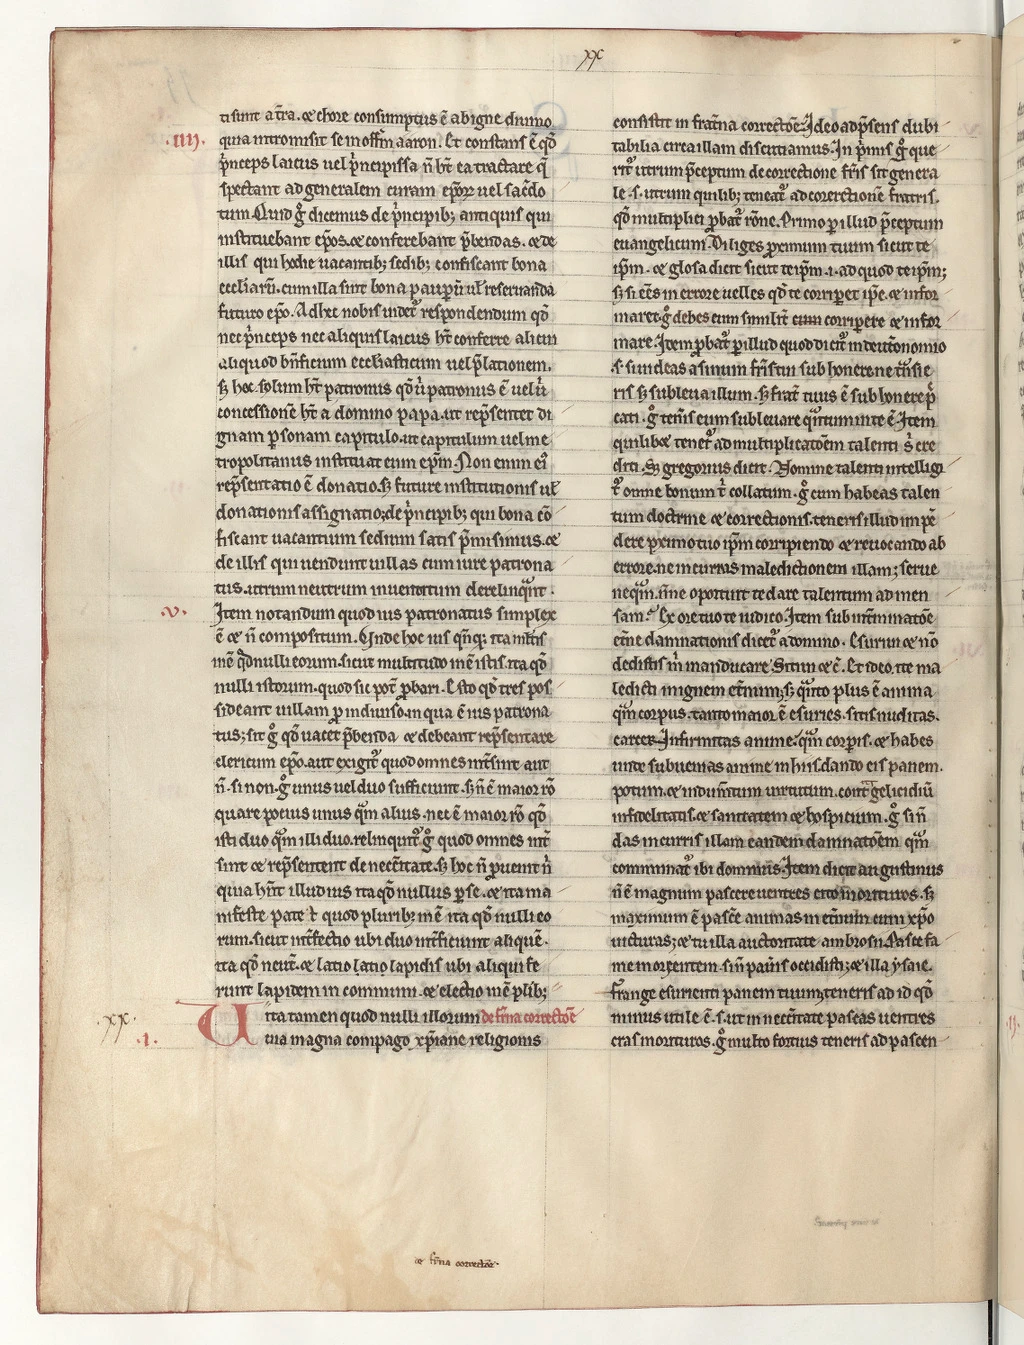 xx
ti sunt a t̃ra. ⁊ chore consumptus ẽ ab igne diuino
.iiii. quia intromisit se in offm̃ aaron. Et constans ẽ qđ
p̃nceps laicus uel p̃ncipissa ñ ht̃ ea tractare q̃
spectant ad generalem curam ep̃oꝝ uel sac̃do
tum. Quid g̃ dicemus de p̃ncipibꝫ antiquis qui
instituebant ep̃os. ⁊ conferebant p̃bendas. ⁊ de
illis qui hodie uacantibꝫ sedibꝫ confiscant bona
eccl̃iarũ. cum illa sint bona paupũ ul̃ reseruanda
futuro ep̃o. Ad hec nobis uidet᷑ respondendum qđ
nec p̃nceps nec aliquis laicus ht̃ conferre alicui
aliquod bñficium eccl̃iasticum uel p̃lationem.
sꝫ hoc solum ht̃ patronus
concessione ht̃ a domino papa. ut rep̃sentet di
gnam ꝑsonam capitulo. ut capitulum uel me
tropolitanus instituat eum ep̃m. Non enim ei᷑
rep̃sentatio ẽ donatio. sꝫ future institutionis ul̃
donationis assignatio; de p̃ncipibꝫ qui bona cõ
fiscant uacantium sedium satis p̃misimus. ⁊
de illis qui uendunt uillas cum iure patrona
tus. utrum neutrum inuentorum derelinq̃nt.
.v. Item notandum quod ius patronatus simplex
ẽ ⁊ ñ compositum. Unde hoc ius
inẽ qđ nulli eorum. sicut multitudo inẽ istis. ita qđ
nulli istorum. quod sic pot̃ ꝓbari. Esto qđ tres pos
sideant uillam ꝓ indiuiso. in qua ẽ ius patrona
tus; sit g̃ qđ uacet p̃benda ⁊ debeant rep̃sentare
clericum ep̃o. aut exigit᷑ quod omnes int̃sint aut
ñ. si non. g̃ unus uel duo sufficiunt. sꝫ ñ ẽ maior rõ
quare potius unus q̃m alius. nec ẽ maior rõ qđ
isti duo q̃m illi duo. relinquit᷑ g̃ quod omnes int̃
sint ⁊ rep̃sentent de nec̃itate. sꝫ hoc ñ ꝓuenit ñ
quia hñt illud ius ita qđ nullus ꝑ se. ⁊ ita ma
nifeste patet quod pluribꝫ inẽ ita qđ nulli eo
rum. sicut int̃fectio ubi duo int̃ficiunt aliquẽ.
ita qđ neut̃. ⁊ latio lapidis ubi aliqui fe
runt lapidem in communi. ⁊ electio inẽ pl̃ibꝫ
ita tamen quod nulli illorum de fr̃na correctõe
xx. .i. Uita magna compago xp̃iane religionis
consistit in frat̃na correctõe. Ideo ad p̃sens dubi
tabilia circa illam discutiamus. In p̃mis g̃ que
rit᷑ utrum p̃ceptum de correctione fr̃is sit genera
le. s. utrum quilibꝫ teneat᷑ ad correctionẽ fratris.
qđ multiplici ꝓbat᷑ rõne. Primo ꝑ illud p̃ceptum
euangelicum. Diliges proximum tuum sicut te
ip̃m. ⁊ glosa dicit sicut teip̃m. i. ad quod teip̃m;
sꝫ si eẽs in errore uelles qđ te corriꝑet ip̃e. ⁊ infor
maret. g̃ debes eum similit̃ corripere ⁊ infor
mare. Item ꝓbat᷑ ꝑ illud quod dicit᷑ in deut̃onomio
.s. si uideas asinum fr̃is tui sub honere ne t̃nsie
ris sꝫ subleua illum. sꝫ frat̃ tuus ẽ sub honere p̃
cati. g̃ teñis eum subleuare q̃ntum in te ẽ. Item
quilibet tenet᷑ ad multiplicatõem talenti s᷑ cre
diti. Sꝫ gregorius dicit. Nomine talenti intelligi
t᷑ omne bonum t᷑ collatum. g̃ cum habeas talen
tum doctrine ⁊ correctionis. teneris illud impẽ
dere proximo tuo ip̃m corripiendo ⁊ reuocando ab
errore. ne incurras maledictionem illam; serue
neq̃m. ñne oportuit te dare talentum ad men
sam. Ex ore tuo te iudico. Item sub int̃minatõe
et̃ne damnationis dicet᷑ a domino. Esuriui ⁊ nõ
dedistis m̃ manducare. Sitiui ⁊ c̃. Et ideo. ite ma
ledicti in ignem et̃num; sꝫ q̃nto plus ẽ anima
q̃m corpus. tanto maior ẽ esuries. sitis nuditas.
carcer. Infirmitas anime. q̃m corꝑis. ⁊ habes
unde subuenias anime in hiis. dando eis panem.
potum. ⁊ indum̃tum uirtutum. cont̃ gelicidiũ
infidelitatis. ⁊ sanitatem ⁊ hospicium. g̃ si ñ
das incurris illam eandem damnatõem q̃m
comminat᷑ ibi dominus. Item dicit augustinus
ñ ẽ magnum pascere uentres cito morituros. sꝫ
maximum ẽ pasc̃e animas in et̃num cum xp̃o
uicturas; ⁊ tu illa auctoritate ambrosii. Pasce fa
me morientem. si ñ pauĩs occidisti; ⁊ illa ysaie.
frange esurienti panem tuum; teneris ad id qđ
minus utile ẽ. s. ut in nec̃itate pascas uentres
cras morituros. g̃ multo fortius teneris ad pascen
de fr̃na correctõe.